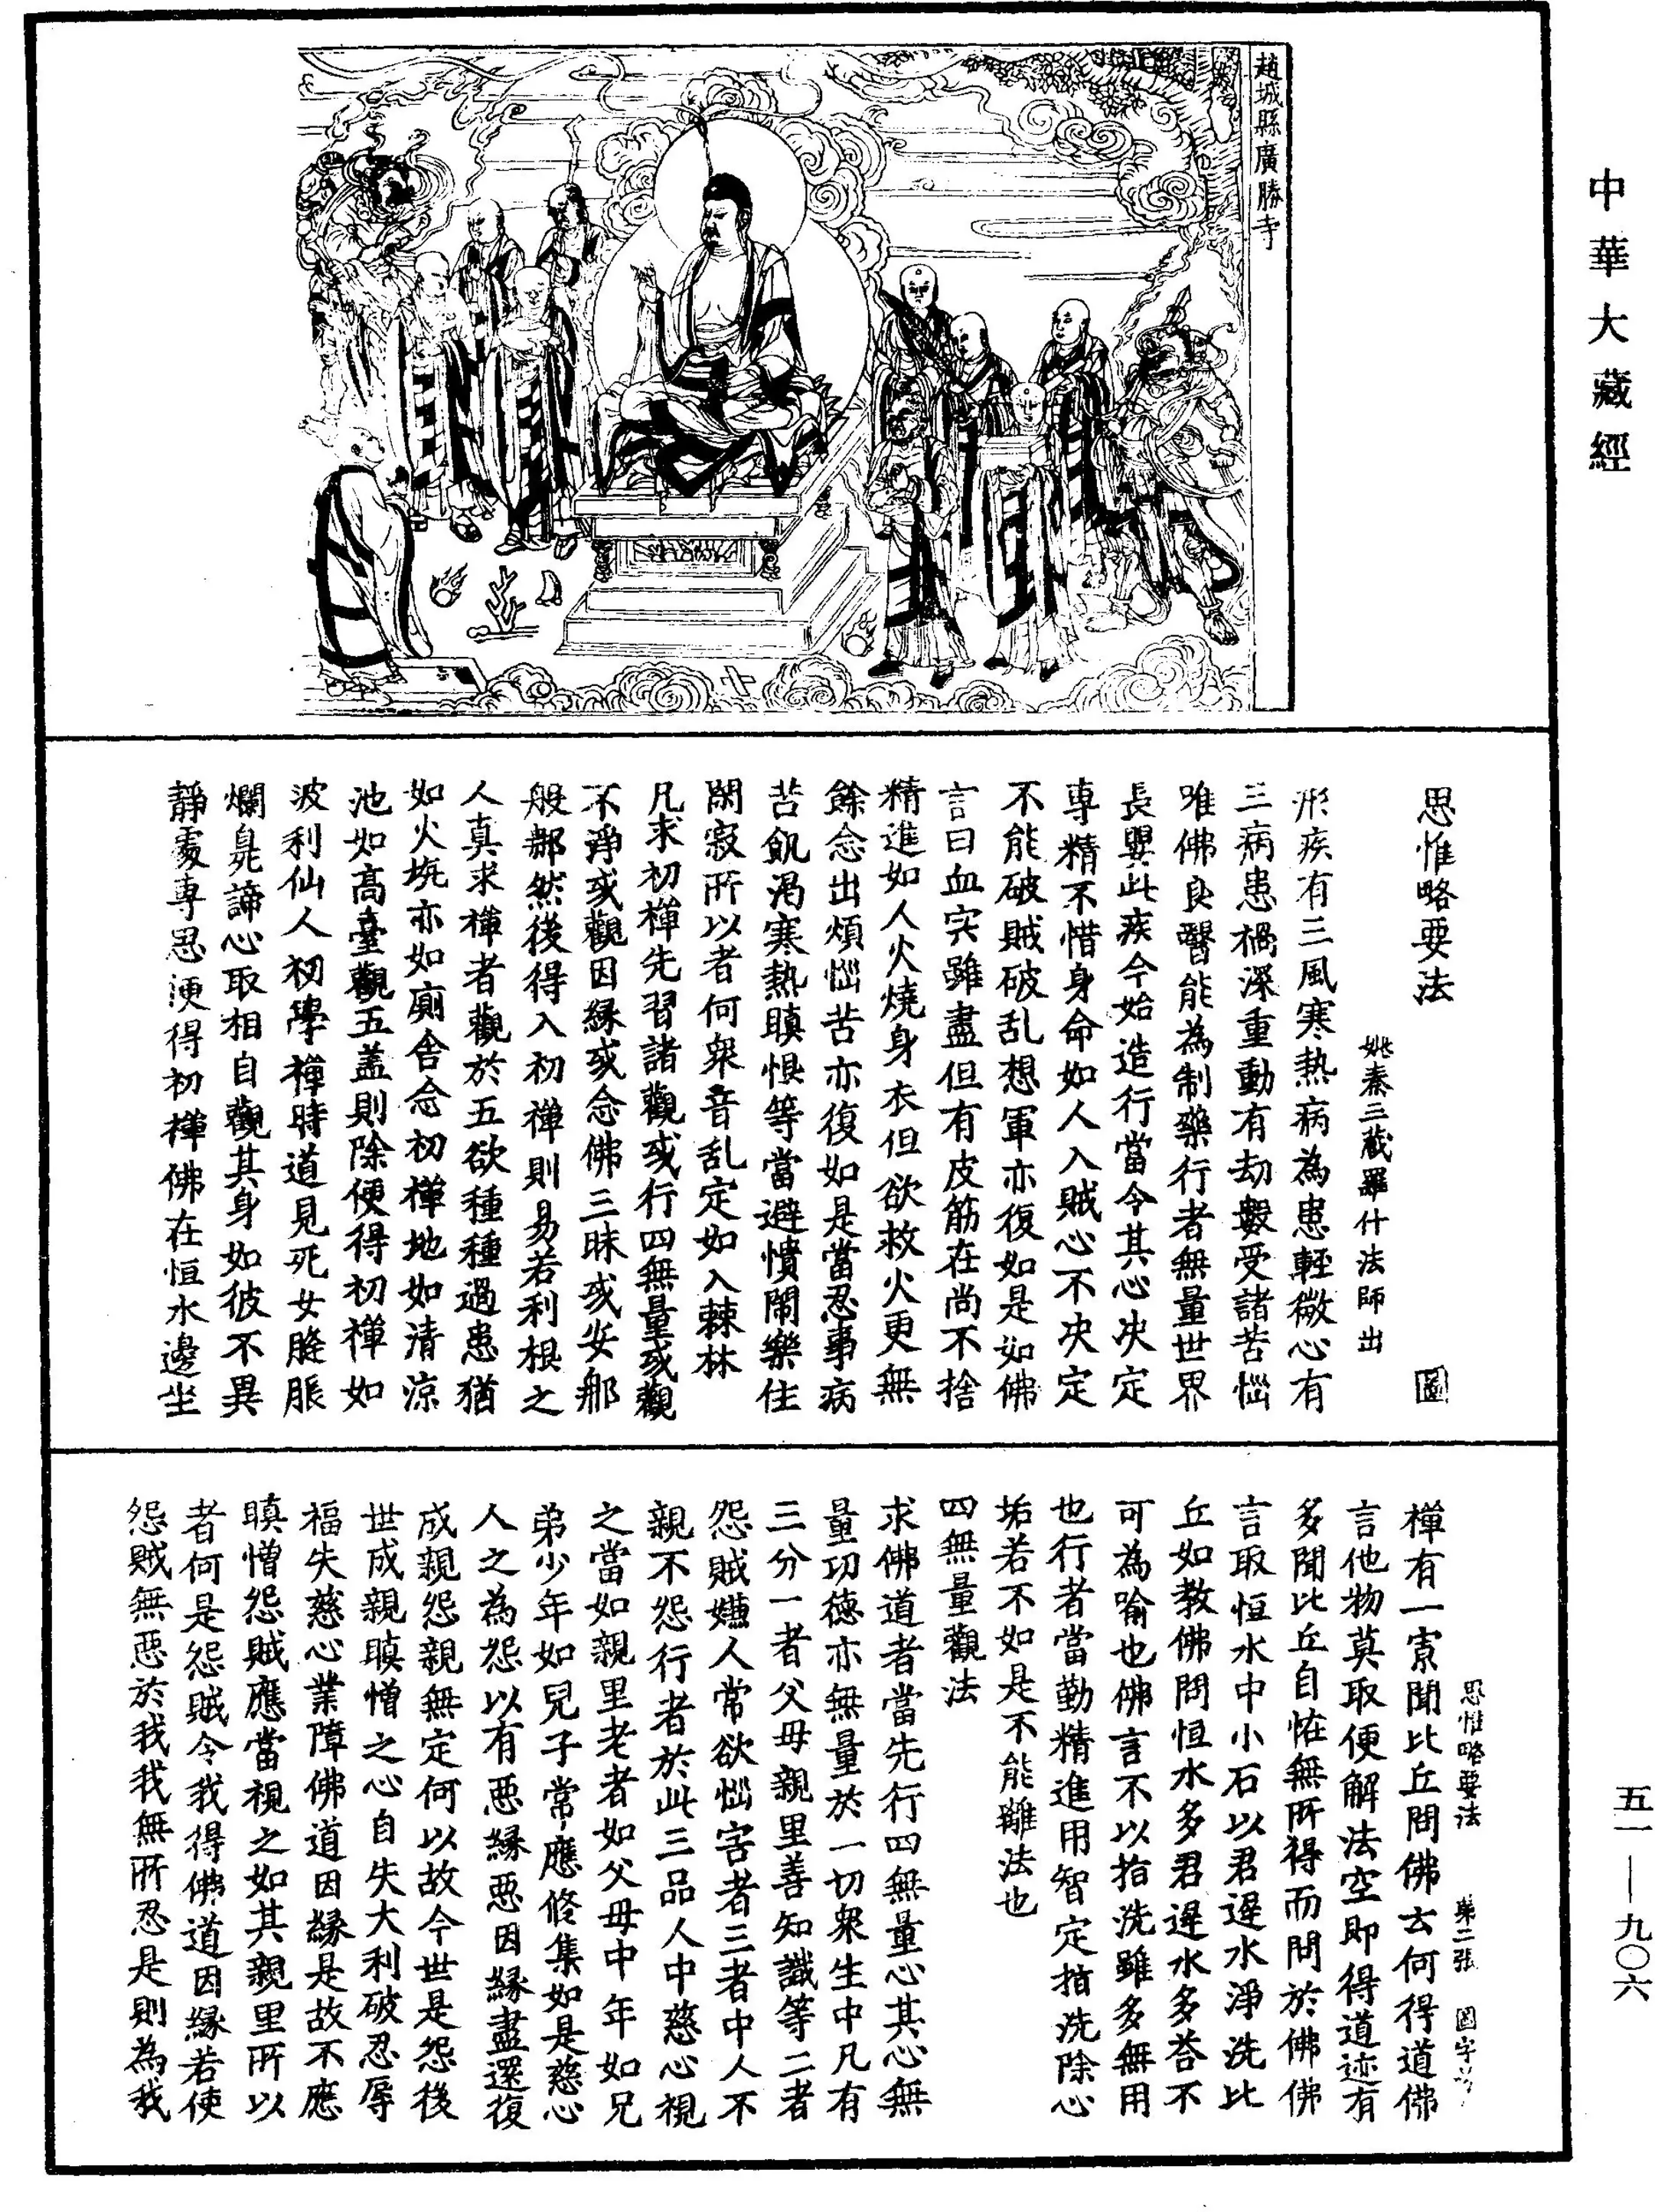 中華大藏經
五一—九〇六
趙城縣廣勝寺
思惟略要法 圖
姚秦三藏羅什法師出
形疾有三風寒熱病為患輕微心有
三病患禍深重動有劫數受諸苦惱
唯佛良醫能為制藥行者無量世界
長嬰此疾今始造行當令其心決定
專精不惜身命如人入賊心不決定
不能破賊破乱想軍亦復如是如佛
言曰血宍雖盡但有皮筋在尚不捨
精進如人火燒身衣但欲救火更無
餘念出煩惱苦亦復如是當忍事病
苦飢渴寒熱瞋恨等當避憒閙樂住
閑寂所以者何衆音乱定如入棘林
凡求初禪先習諸觀或行四無量或觀
不淨或觀因緣或念佛三昧或安那
般那然後得入初禪則易若利根之
人真求禪者觀於五欲種種過患猶
如火坑亦如廁舍念初禪地如清涼
池如高臺觀五盖則除便得初禪如
波利仙人初學禪時道見死女膖脹
爛臰諦心取相自觀其身如彼不異
靜處専思便得初禪佛在恒水邊坐
思惟略要法 第二張 圖字
禪有一寡聞比丘問佛云何得道佛
言他物莫取便解法空即得道迹有
多聞比丘自恠無所得而問於佛佛
言取恒水中小石以君遟水淨洗比
丘如教佛問恒水多君遟水多荅不
可為喻也佛言不以指洗雖多無用
也行者當勤精進用智定指洗除心
垢若不如是不能離法也
四無量觀法
求佛道者當先行四無量心其心無
量功德亦無量於一切衆生中凡有
三分一者父母親里善知識等二者
怨賊嫌人常欲惱害者三者中人不
親不怨行者於此三品人中慈心視
之當如親里老者如父母中年如兄
弟少年如兒子常應修集如是慈心
人之為怨以有惡緣惡因緣盡還復
成親怨親無定何以故今世是怨後
世成親瞋憎之心自失大利破忍辱
福失慈心業障佛道因緣是故不應
瞋憎怨賊應當視之如其親里所以
者何是怨賊令我得佛道因緣若使
怨賊無惡於我我無所忍是則為我